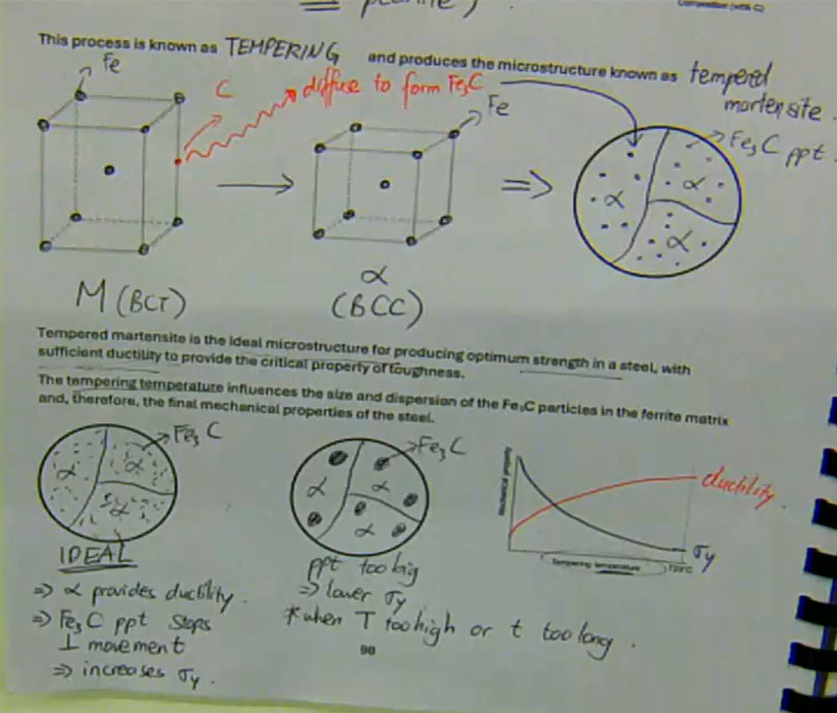 This process is known as TEMPERING and produces the microstructure known as tempered
martensite.
Fe
C
diffuse to form Fe₃C
Fe
Fe₃C ppt.
α
α
α
M (BCT)
α
(BCC)
Tempered martensite is the ideal microstructure for producing optimum strength in a steel, with
sufficient ductility to provide the critical property of toughness.
The tempering temperature influences the size and dispersion of the Fe₃C particles in the ferrite matrix
and, therefore, the final mechanical properties of the steel.
Fe₃C
α
α
α
IDEAL
⇒ α provides ductility.
⇒ Fe₃C ppt stops
⊥ movement
⇒ increases σy.
Fe₃C
α
α
α
ppt too big
⇒ lower σy
*when T too high or t too long.
Mechanical property
ductility.
σy
Tempering temperature
723°C
90